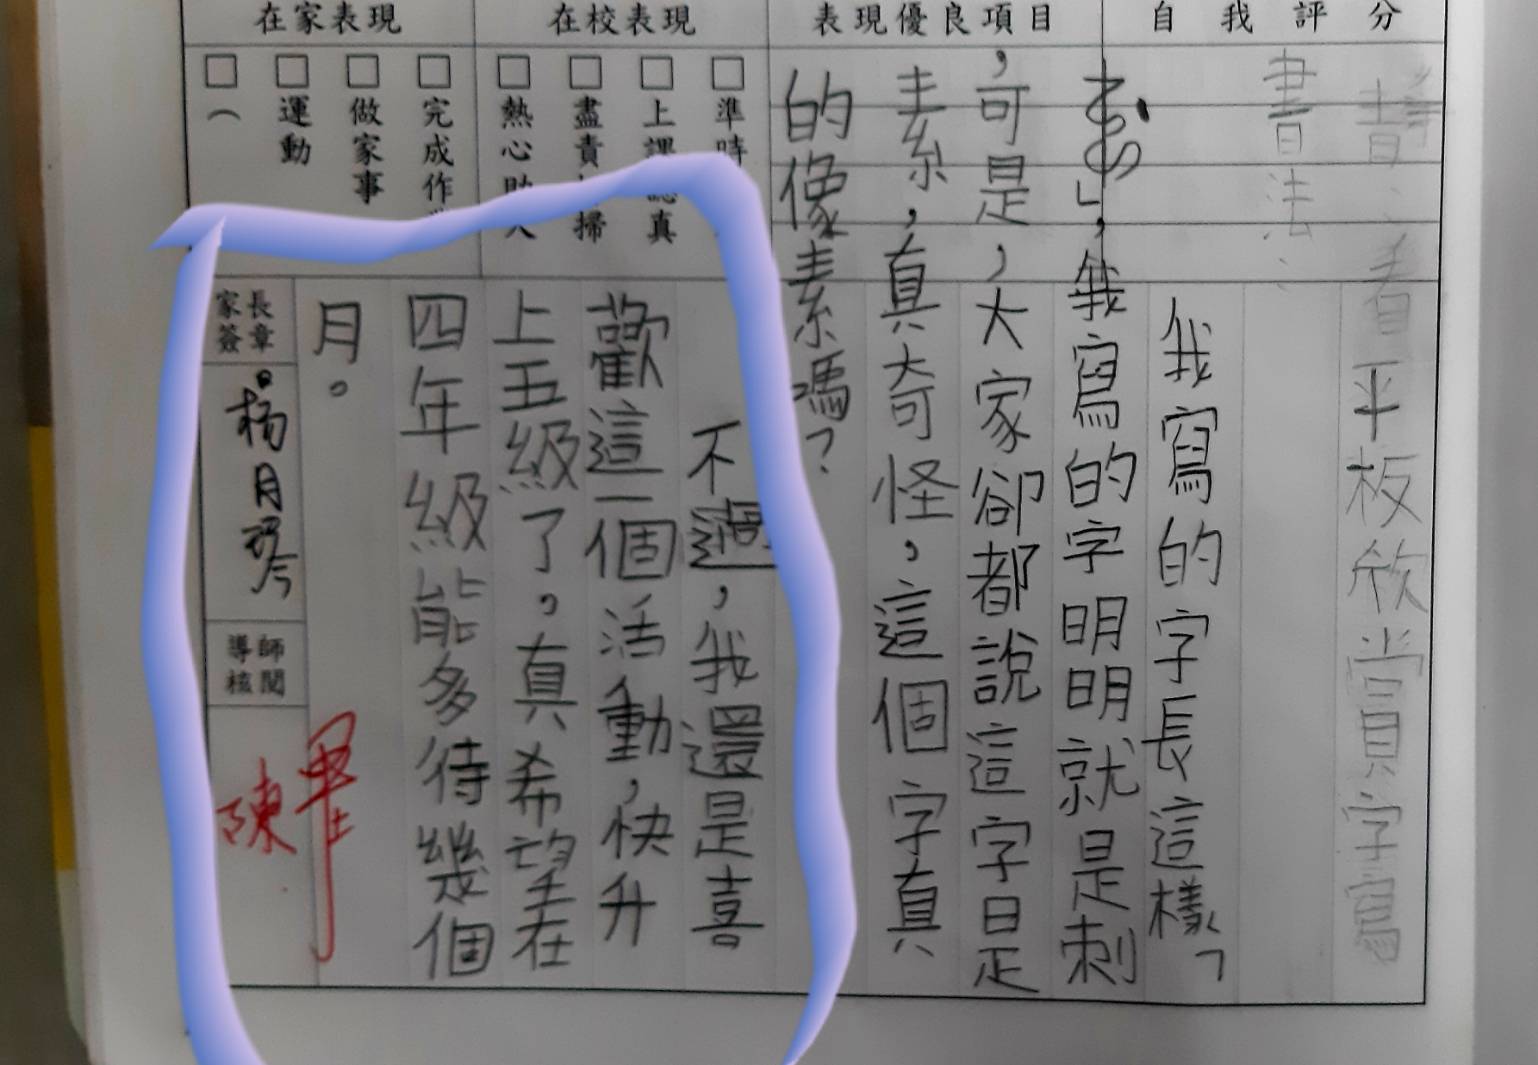 自我評分
表現優良項目
在校表現
在家表現
□準時
□上課認真
□盡責 掃
□熱心助人
□完成作
□做家事
□運動
□（
看平板欣賞字寫
書法、
我寫的字長這樣「
」，我寫的字明明就是刺
，可是，大家卻都說這字是
素，真奇怪，這個字真
的像素嗎？
不過，我還是喜
歡這一個活動，快升
上五級了。真希望在
四年級能多待幾個
月。
家長
簽章
楊月琴
導師
核閱
陳
畢